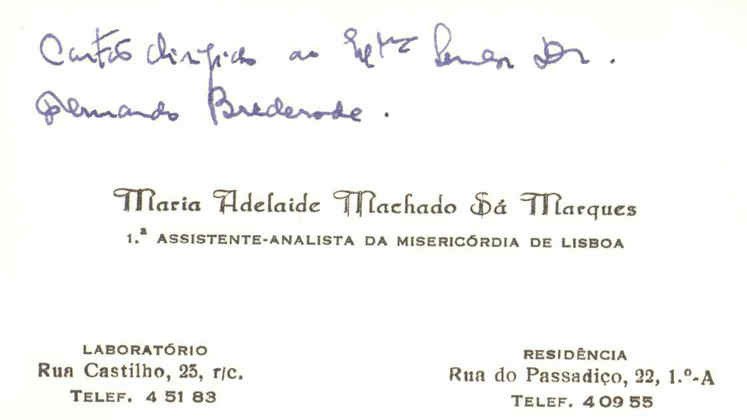 Cartão dirigido ao Exmo Senhor Dr.
Fernando Brederode.
Maria Adelaide Machado Sá Marques
1.ª ASSISTENTE-ANALISTA DA MISERICÓRDIA DE LISBOA
LABORATÓRIO
Rua Castilho, 25, r/c.
TELEF. 4 51 83
RESIDÊNCIA
Rua do Passadiço, 22, 1.º-A
TELEF. 4 09 55